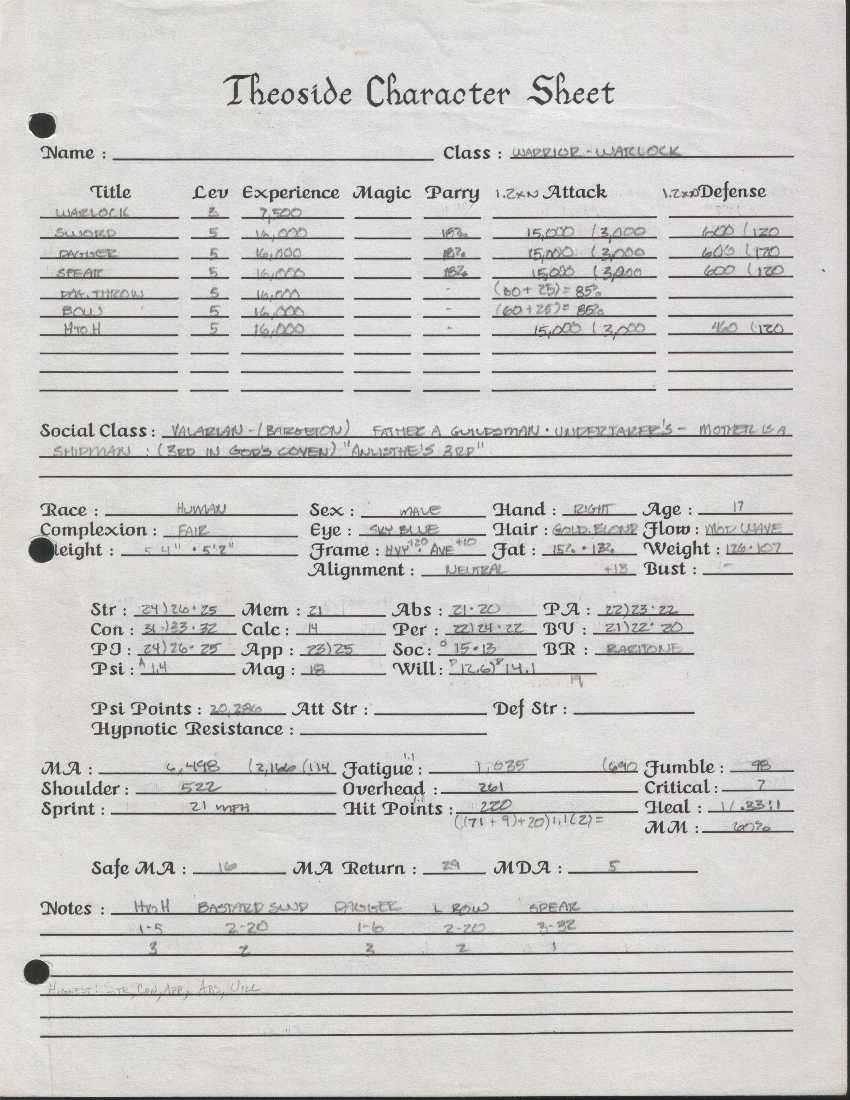 Theoside Character Sheet
Name : Class : WARRIOR - WARLOCK
Title Lev Experience Magic Parry 1.2xN Attack 1.2xN Defense
WARLOCK 3 7,500
SWORD 5 16,000 18% 15,000 (3,000 600 (120
DAGGER 5 16,000 18% 15,000 (3,000 600 (120
SPEAR 5 16,000 18% 15,000 (3,000 600 (120
DAG. THROW 5 16,000 - (60 + 25) = 85%
BOW 5 16,000 - (60 + 25) = 85%
HTOH 5 16,000 - 15,000 (3,000 460 (120
Social Class : VALARIAN - (BARGETON) FATHER A GUILDSMAN · UNDERTAKER'S - MOTHER IS A
SHIPMAN : (3RD IN GOD'S COVEN) "ANLISTHE'S 3RD"
Race : HUMAN Sex : MALE Hand : RIGHT Age : 17
Complexion : FAIR Eye : SKY BLUE Hair : GOLD. BLOND Flow : MOD. WAVE
Height : 5'4" · 5'2" Frame : HVY +20 · AVE +10 Fat : 15% · 13% Weight : 126 · 107
Alignment : NEUTRAL +13 Bust : -
Str : 24)26·25 Mem : 21 Abs : 21·20 PA : 22)23·22
Con : 31)33·32 Calc : 14 Per : 22)24·22 BV : 21)22·20
PI : 24)26·25 App : 23)25 Soc : 15·13 BR : BARITONE
Psi : A 1.4 Mag : 18 Will : P 12.6) 14.1
19
Psi Points : 20,286 Att Str : Def Str :
Hypnotic Resistance :
MA : 6,498 (2,166 (114 Fatigue : 1.1 1,035 (690 Fumble : 98
Shoulder : 522 Overhead : 261 Critical : 7
Sprint : 21 MPH Hit Points : 1.1 220 Heal : 1/.33:1
((71 + 9)+20)1.1(2)= MM : 60%
Safe MA : 16 MA Return : 29 MDA : 5
Notes : HTOH BASTARD SWD DAGGER L BOW SPEAR
1-5 2-20 1-6 2-20 3-32
3 2 3 2 1
HIGHEST: STR, CON, APP, ABS, WILL